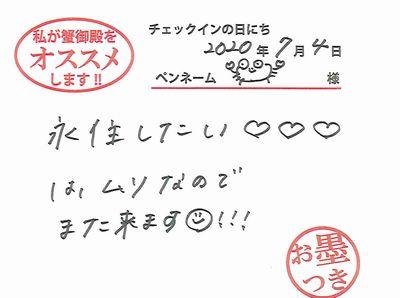 私が蟹御殿を
オススメ
します!!
チェックインの日にち
2020年7月4日
ペンネーム 様
永住したい♡♡♡
は、ムリなので
また来ます☺!!!
お墨
つき